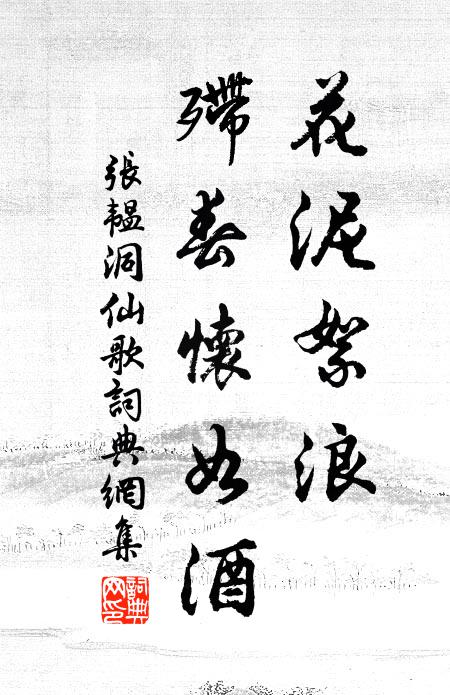 花泥絮浪
殢春懷如酒
張韞洞仙歌詞典網集
詞典網印